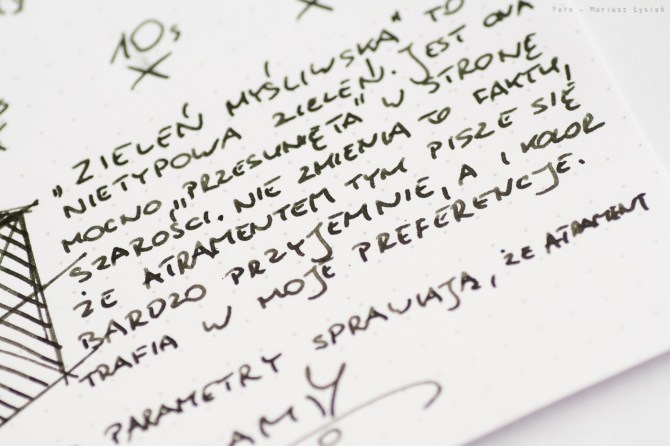 Foto - Mariusz Łysień
10s
"ZIELEŃ MYŚLIWSKA" TO
NIETYPOWA ZIELEŃ. JEST ONA
MOCNO "PRZESUNIĘTA" W STRONĘ
SZAROŚCI. NIE ZMIENIA TO FAKTU,
ŻE ATRAMENTEM TYM PISZE SIĘ
BARDZO PRZYJEMNIE, A I KOLOR
TRAFIA W MOJE PREFERENCJE.
PARAMETRY SPRAWIAJĄ, ŻE ATRAMENT